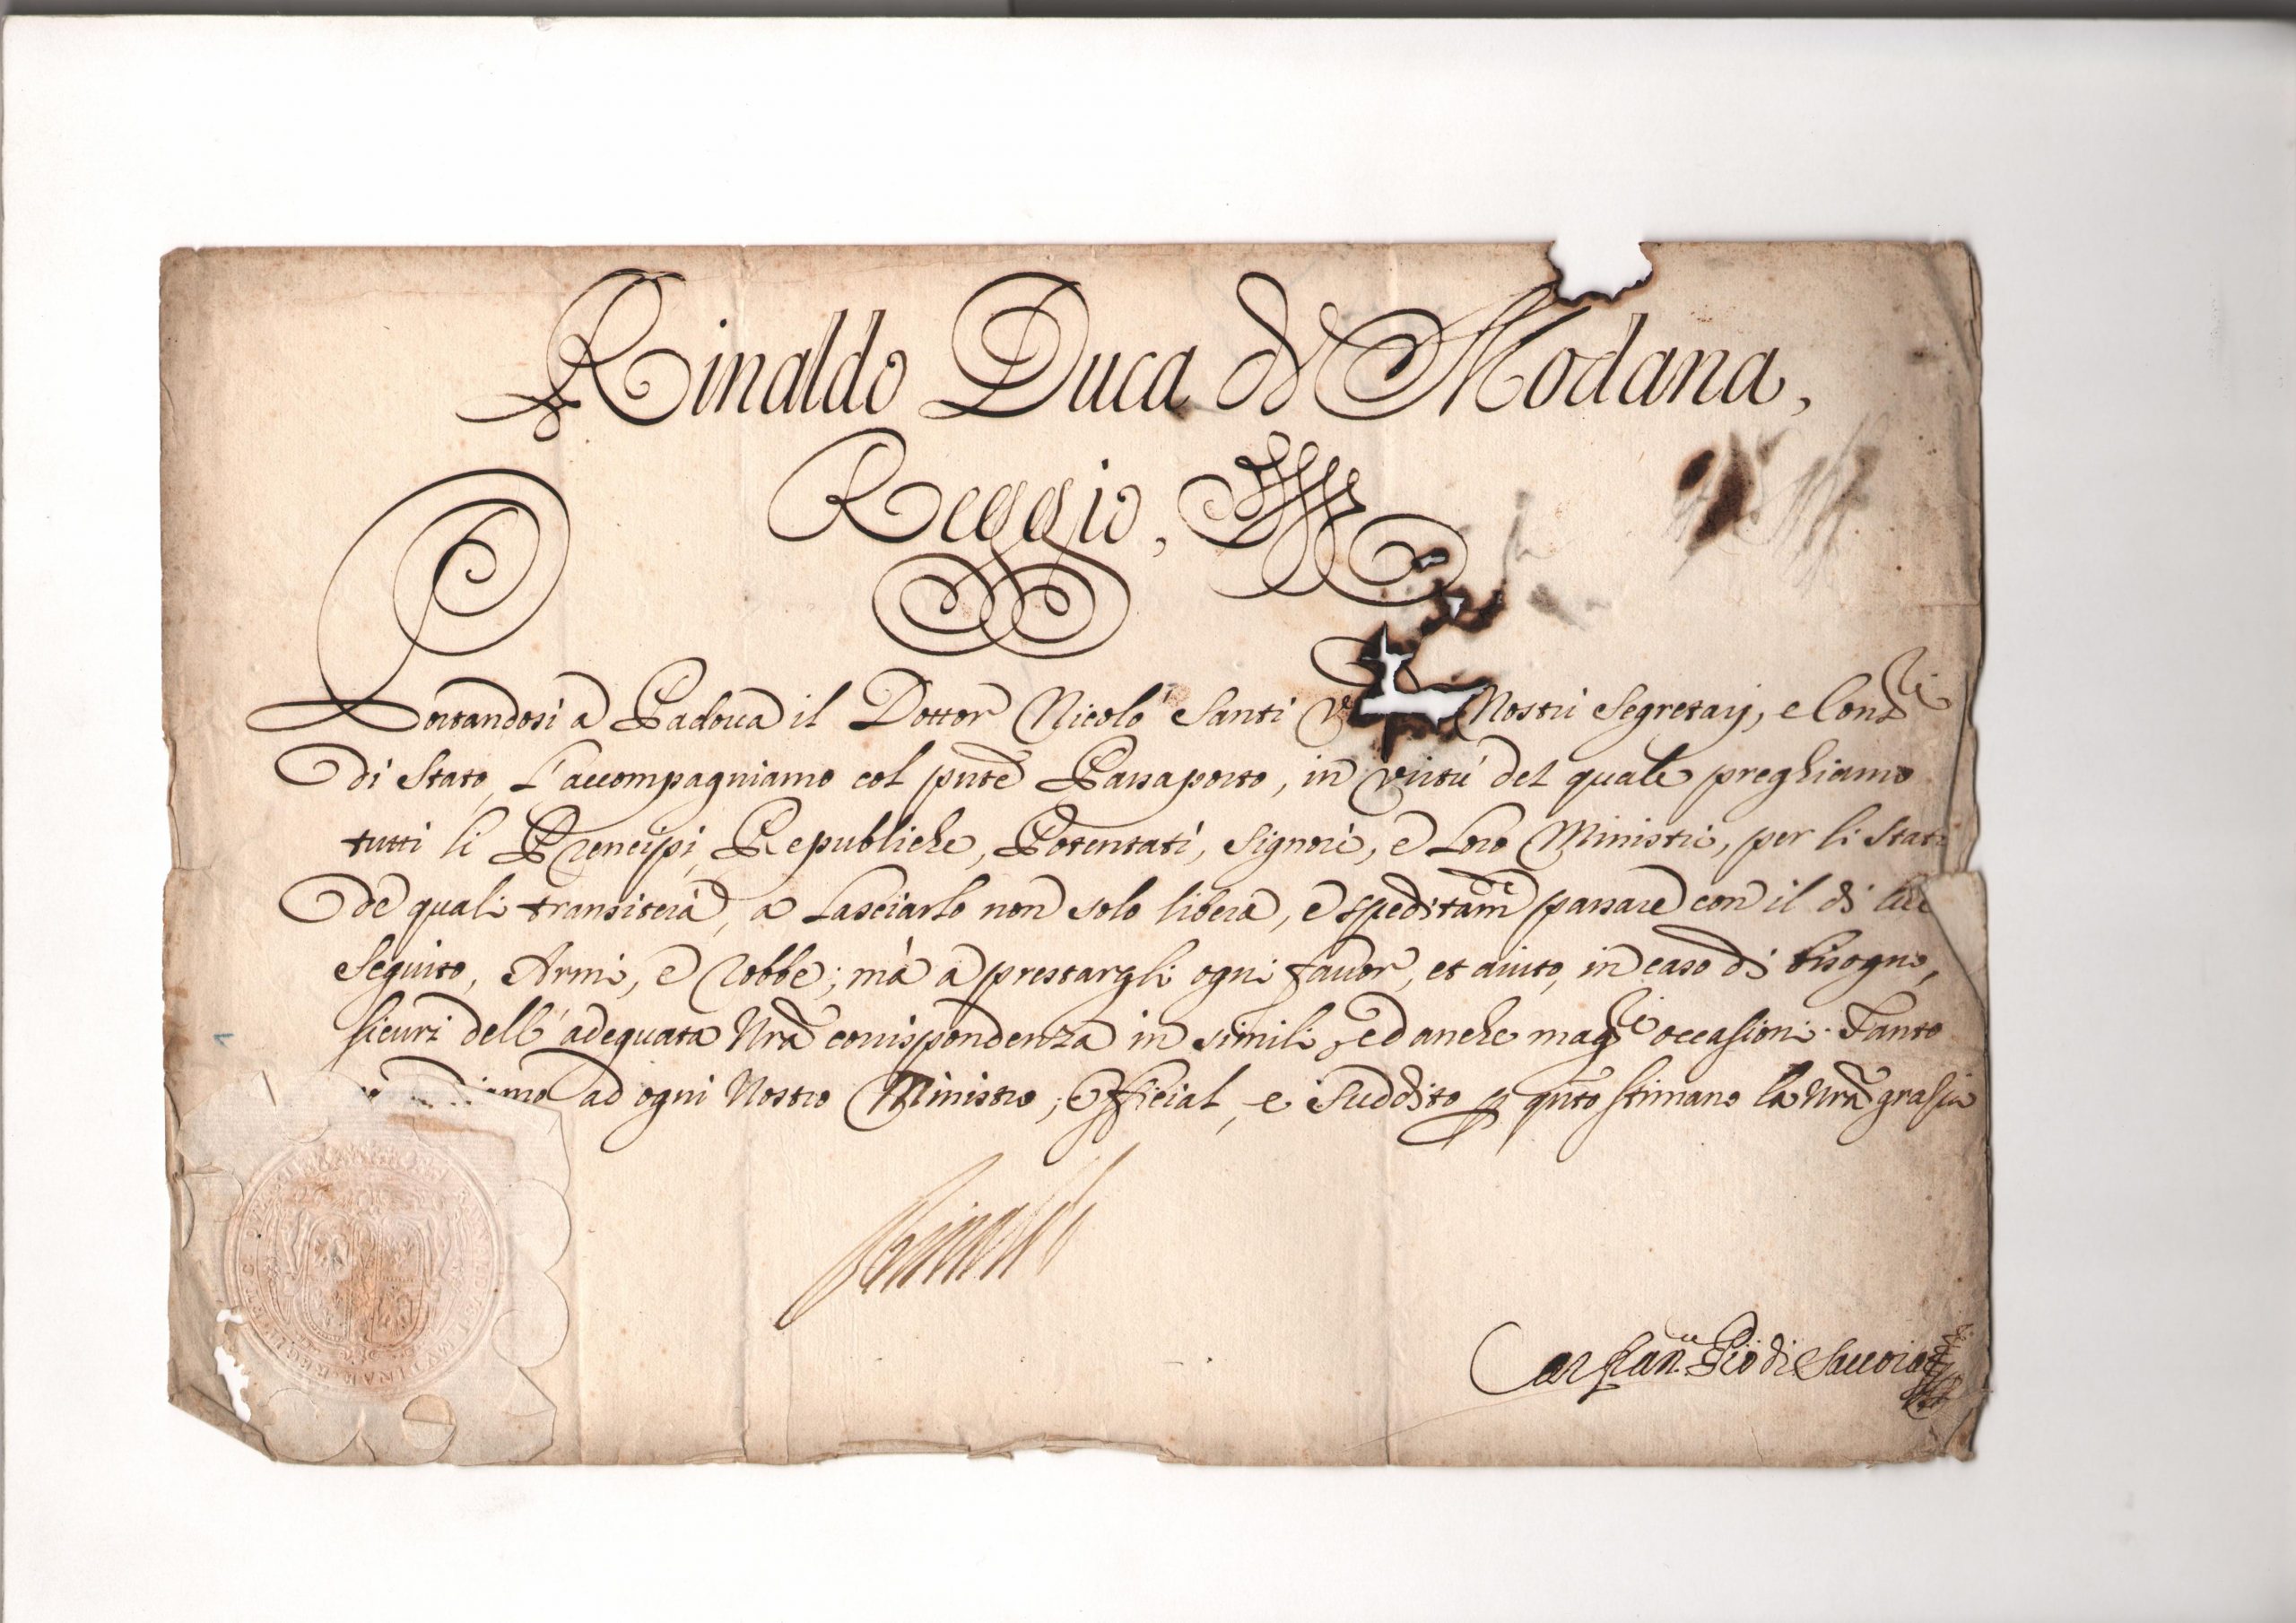 Rinaldo Duca di Modana,
Reggio, &c
Portandosi à Padoua il Dottor Nicolò Santi Nostri Segretarij, e Consri
di Stato, L'accompagniamo col pnte Passaporto, in virtù del quale preghiamo
tutti li Prencipi, Republiche, Potentati, Signori, e Loro Ministri, per li Stati
de quali transiterà, a Lasciarlo non solo libera, e speditamte passare con il di lui
seguito, Armi, e robbe; mà a prestargli ogni fauor, et aiuto, in caso di bisogno,
sicuri dell' adequata Nrã corrispondenza in simili, ed anche magri occasioni. Tanto
ad ogni Nostro Ministro, Official, e Suddito p qnto stimano la Nrã grasia
Rinaldo
Car Pio di Sauoia